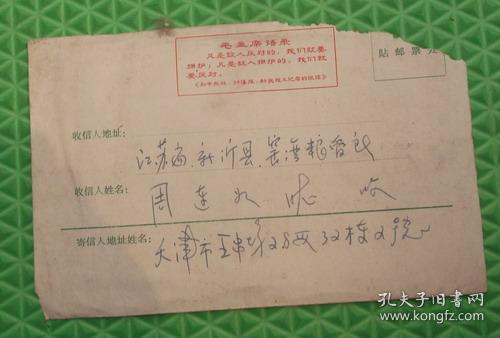 毛主席语录
凡是敌人反对的，我们就要
拥护；凡是敌人拥护的，我们就
要反对。
《和中央社、扫荡报、新民报三记者的谈话》
贴邮票处
收信人地址：
江苏省、新沂县、窑湾粮管所
收信人姓名：
周连 收
寄信人地址姓名：
天津市王串场
孔夫子旧书网
www.kongfz.com